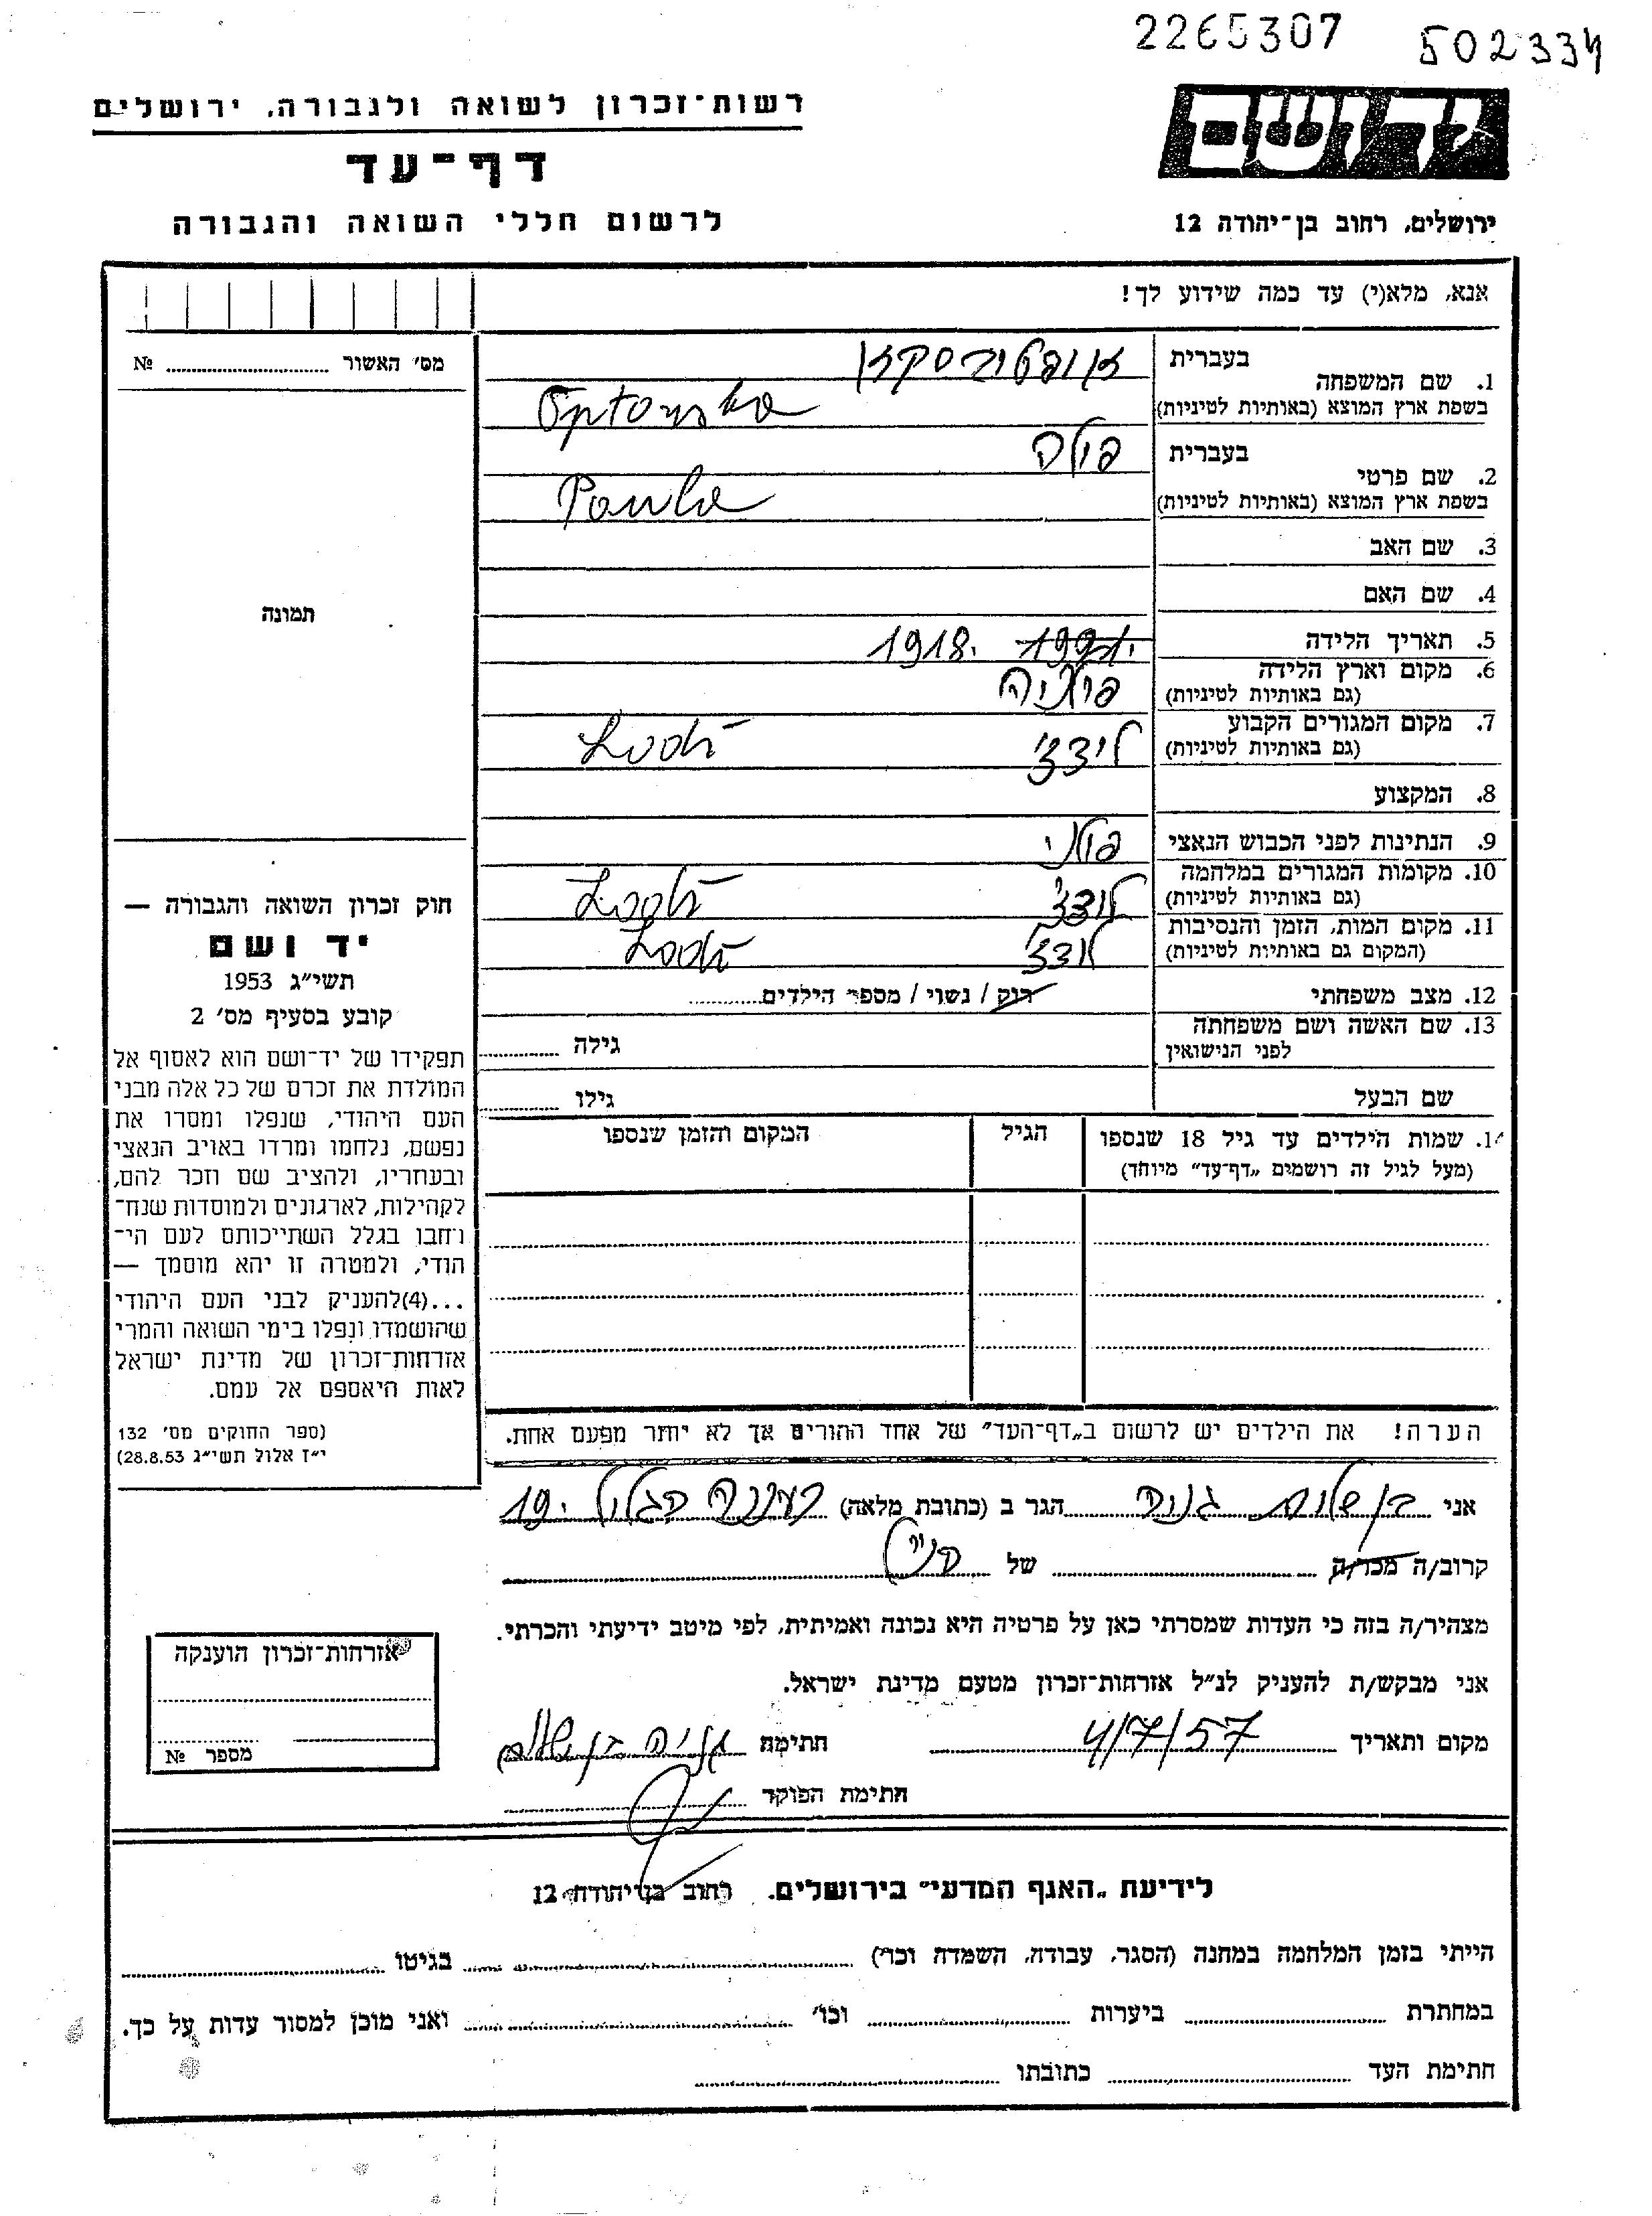 2265307 502334
רשות-זכרון לשואה ולגבורה, ירושלים
דף-עד
לרשום חללי השואה והגבורה
יד ושם
ירושלים, רחוב בן-יהודה 12
אנא, מלא(י) עד כמה שידוע לך!
מס' האשור № 
1. שם המשפחה
בעברית אופטובסקא
בשפת ארץ המוצא (באותיות לטיניות) Optowska
2. שם פרטי
בעברית פולה
בשפת ארץ המוצא (באותיות לטיניות) Paula
3. שם האב
4. שם האם
5. תאריך הלידה 1918.
6. מקום וארץ הלידה פולניה
(גם באותיות לטיניות)
7. מקום המגורים הקבוע לודצ' Lodź
(גם באותיות לטיניות)
8. המקצוע
9. הנתינות לפני הכבוש הנאצי פולני
10. מקומות המגורים במלחמה לודצ' Lodź
(גם באותיות לטיניות)
11. מקום המות, הזמן והנסיבות לודצ' Lodź
(המקום גם באותיות לטיניות)
12. מצב משפחתי רוק / נשוי / מספר הילדים
13. שם האשה ושם משפחתה גילה
לפני הנישואין
שם הבעל גילו
14. שמות הילדים עד גיל 18 שנספו הגיל המקום והזמן שנספו
(מעל לגיל זה רושמים "דף-עד" מיוחד)
הערה! את הילדים יש לרשום ב"דף-העד" של אחד ההורים אך לא יותר מפעם אחת.
תמונה
חוק זכרון השואה והגבורה —
יד ושם
תשי"ג 1953
קובע בסעיף מס' 2
תפקידו של יד-ושם הוא לאסוף אל
המולדת את זכרם של כל אלה מבני
העם היהודי, שנפלו ומסרו את
נפשם, נלחמו ומרדו באויב הנאצי
ובעוזריו, ולהציב שם וזכר להם,
לקהילות, לארגונים ולמוסדות שנח-
רבו בגלל השתייכותם לעם הי-
הודי, ולמטרה זו יהא מוסמך —
...(4) להעניק לבני העם היהודי
שהושמדו ונפלו בימי השואה והמרי
אזרחות-זכרון של מדינת ישראל
לאות היאספם אל עמם.
(ספר החוקים מס' 132
י"ז אלול תשי"ג 28.8.53)
אני בן שלום הגר ב (כתובת מלאה) רעננה 19
קרוב/ה מכר/ה של
מצהיר/ה בזה כי העדות שמסרתי כאן על פרטיה היא נכונה ואמיתית, לפי מיטב ידיעתי והכרתי.
אני מבקש/ת להעניק לנ"ל אזרחות-זכרון מטעם מדינת ישראל.
מקום ותאריך 4/7/57 חתימה בן שלום
חתימת הפוקד
אזרחות-זכרון הוענקה
מספר №
לידיעת "האגף המדעי" בירושלים, רחוב בן יהודה 12
הייתי בזמן המלחמה במחנה (הסגר, עבודה, השמדה וכו') בגיטו
במחתרת ביערות וכו' ואני מוכן למסור עדות על כך.
חתימת העד כתובתו